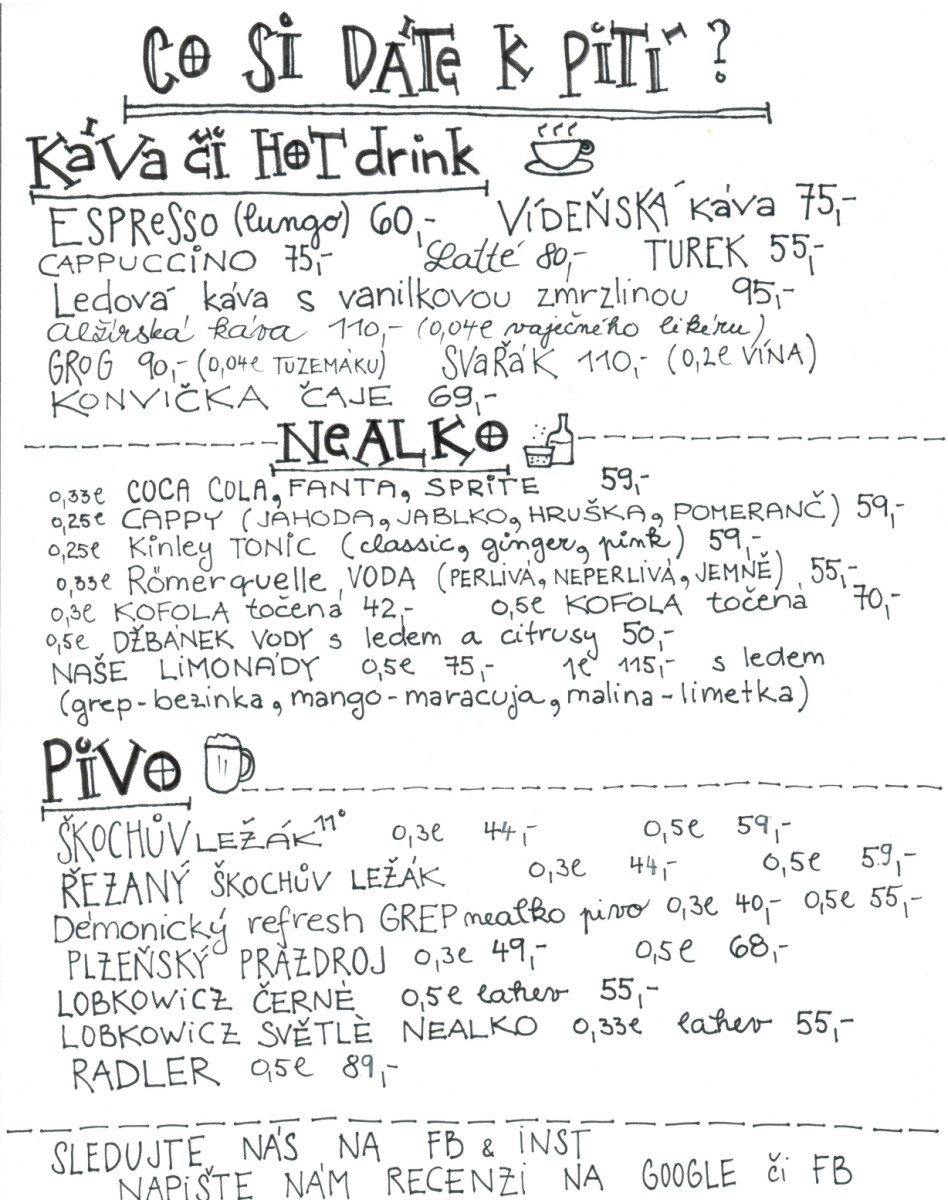 CO SI DÁTE K PITÍ ?
KÁVA čí HOT drink
ESPRESSO (lungo) 60,- VÍDEŇSKÁ káva 75,-
CAPPUCCINO 75,- Latté 80,- TUREK 55,-
Ledová káva s vanilkovou zmrzlinou 95,-
alžírská káva 110,- (0,04l vaječného likéru)
GROG 90,- (0,04l TUZEMÁKU) SVAŘÁK 110,- (0,2l VÍNA)
KONVIČKA ČAJE 69,-
NEALKO
0,33l COCA COLA, FANTA, SPRITE 59,-
0,25l CAPPY (JAHODA, JABLKO, HRUŠKA, POMERANČ) 59,-
0,25l Kinley TONIC (classic, ginger, pink) 59,-
0,33l Römerquelle VODA (PERLIVÁ, NEPERLIVÁ, JEMNĚ) 55,-
0,3l KOFOLA točená 42,- 0,5l KOFOLA točená 70,-
0,5l DŽBÁNEK VODY s ledem a citrusy 50,-
NAŠE LIMONÁDY 0,5l 75,- 1l 115,- s ledem
(grep-bezinka, mango-maracuja, malina-limetka)
PIVO
ŠKOCHŮV LEŽÁK 11° 0,3l 44,- 0,5l 59,-
ŘEZANÝ ŠKOCHŮV LEŽÁK 0,3l 44,- 0,5l 59,-
Démonický refresh GREP nealko pivo 0,3l 40,- 0,5l 55,-
PLZEŇSKÝ PRAZDROJ 0,3l 49,- 0,5l 68,-
LOBKOWICZ ČERNÉ 0,5l lahev 55,-
LOBKOWICZ SVĚTLÉ NEALKO 0,33l lahev 55,-
RADLER 0,5l 89,-
SLEDUJTE NÁS NA FB & INST
NAPIŠTE NÁM RECENZI NA GOOGLE či FB